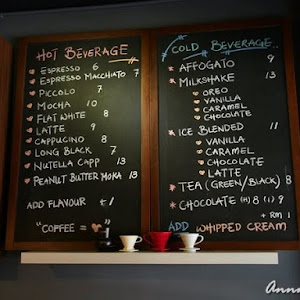 HOT BEVERAGE
ESPRESSO 6
ESPRESSO MACCHIATO 7
PICCOLO 7
MOCHA 10
FLAT WHITE 8
LATTE 9
CAPPUCINO 8
LONG BLACK 7
NUTELLA CAPP 13
PEANUT BUTTER MOKA 13
ADD FLAVOUR +1
"COFFEE = ❤"
COLD BEVERAGE
* AFFOGATO 9
* MILKSHAKE 13
OREO
VANILLA
CARAMEL
CHOCOLATE
* ICE BLENDED 11
VANILLA
CARAMEL
CHOCOLATE
LATTE
* TEA (GREEN/BLACK) 8
* CHOCOLATE (H) 8 (C) 9
+ RM 1
ADD WHIPPED CREAM